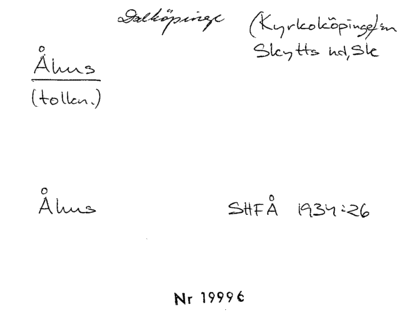 Dalköpinge (Kyrkoköpinge) sn
Skytts hd, Sk
Åhus
(tolkn.)
Åhus SHFÅ 1934:26
Nr 19996